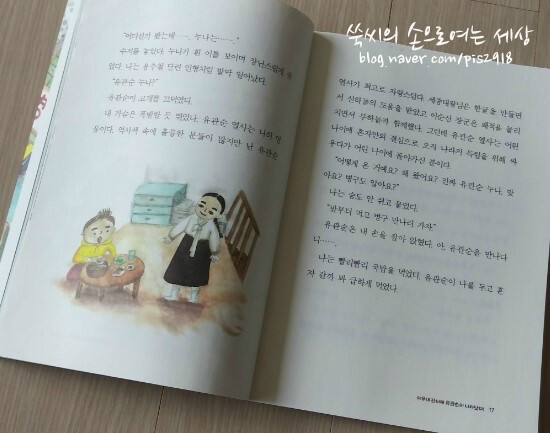 쑥씨의 손으로여는 세상
blog.naver.com/pis2918
"어디선가 봤는데……. 누나는……."
수저를 놓았다. 누나가 흰 이를 보이며 장난스럽게 웃
었다. 나는 용수철 달린 인형처럼 발딱 일어났다.
"유관순 누나?"
유관순이 고개를 끄덕였다.
내 가슴은 폭발할 듯 뛰었다. 유관순 열사는 나의 영
웅이다. 역사책 속에 훌륭한 분들이 많지만 난 유관순
열사가 최고로 자랑스럽다. 세종대왕님은 한글을 만들면
서 신하들의 도움을 받았고 이순신 장군은 왜적을 물리
치면서 부하들과 함께했다. 그런데 유관순 열사는 어린
나이에 혼자만의 결심으로 오직 나라의 독립을 위해 싸
우다가 어린 나이에 돌아가신 분이다.
"어떻게 온 거예요? 왜 왔어요? 진짜 유관순 누나, 맞
아요? 병구도 알아요?"
나는 숨도 안 쉬고 물었다.
"밥부터 먹고 병구 만나러 가자."
유관순은 내 손을 잡아 앉혔다. 아, 유관순을 만나다
니…….
나는 빨리빨리 국밥을 먹었다. 유관순이 나를 두고 혼
자 갈까 봐 급하게 먹었다.
아우내 장터에 유관순이 나타났다! 17